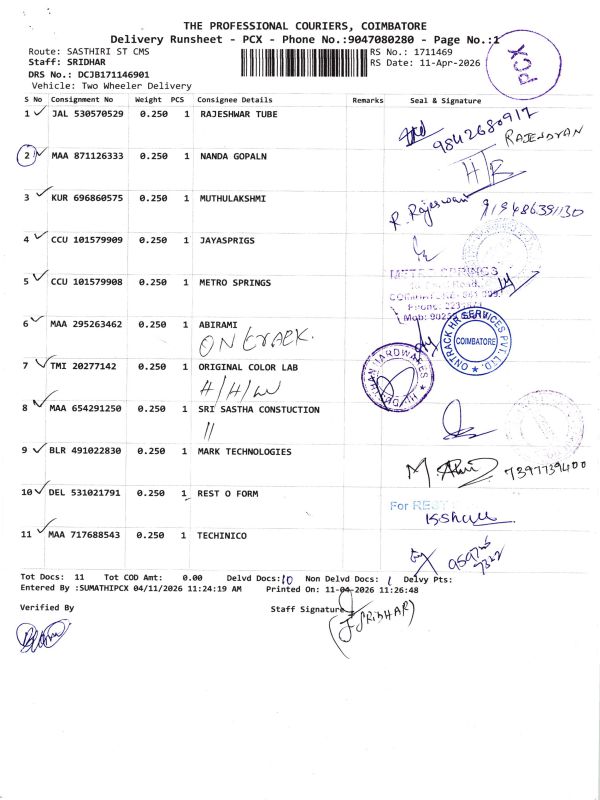 THE PROFESSIONAL COURIERS, COIMBATORE
Delivery Runsheet - PCX - Phone No.:9047080280 - Page No.:1
PCX
Route: SASTHIRI ST CMS
RS No.: 1711469
Staff: SRIDHAR
RS Date: 11-Apr-2026
DRS No.: DCJB171146901
Vehicle: Two Wheeler Delivery
S No Consignment No Weight PCS Consignee Details Remarks Seal & Signature
1 JAL 530570529 0.250 1 RAJESHWAR TUBE
9842680917
RAJENDRAN
2 MAA 871126333 0.250 1 NANDA GOPALN
H/R
3 KUR 696860575 0.250 1 MUTHULAKSHMI
R. Rajeswari 919486391130
4 CCU 101579909 0.250 1 JAYASPRIGS
5 CCU 101579908 0.250 1 METRO SPRINGS
METRO SPRINGS
6 MAA 295263462 0.250 1 ABIRAMI
ONTRACK HR SERVICES PVT. LTD.
COIMBATORE
7 TMI 20277142 0.250 1 ORIGINAL COLOR LAB
HARDWARES
H/H/W
8 MAA 654291250 0.250 1 SRI SASTHA CONSTUCTION
11
9 BLR 491022830 0.250 1 MARK TECHNOLOGIES
7397739400
10 DEL 531021791 0.250 1 REST O FORM
For REST
11 MAA 717688543 0.250 1 TECHINICO
Tot Docs: 11 Tot COD Amt: 0.00 Delvd Docs: 10 Non Delvd Docs: 1 Delvy Pts:
Entered By :SUMATHIPCX 04/11/2026 11:24:19 AM Printed On: 11-04-2026 11:26:48
Verified By
Staff Signature
(J. SRIDHAR)